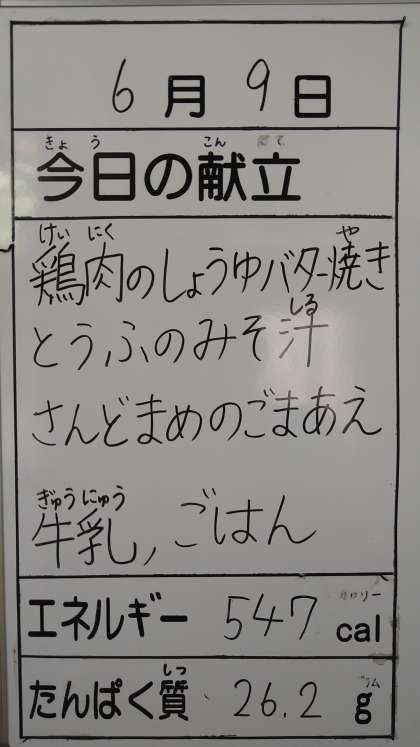 6月9日
きょう こん だて
今日の献立
けい にく や
鶏肉のしょうゆバター焼き
しる
とうふのみそ汁
さんどまめのごまあえ
ぎゅう にゅう
牛乳, ごはん
カロリー
エネルギー 547 cal
しつ グラム
たんぱく質 26.2 g